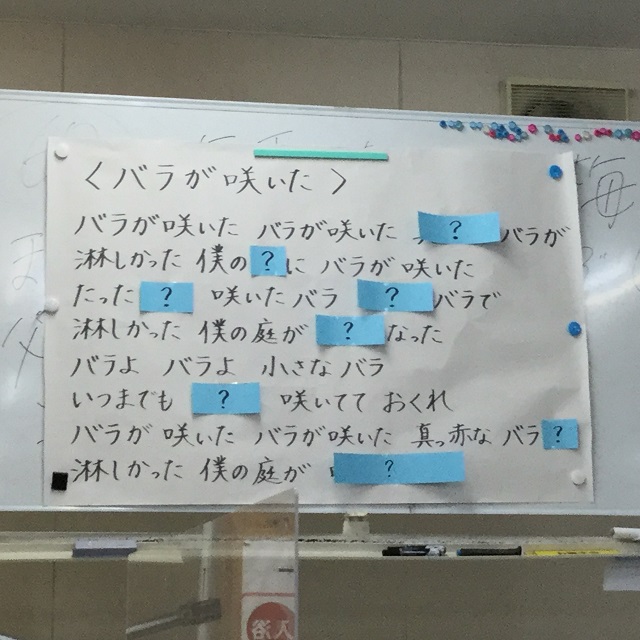 〈バラが咲いた〉
バラが咲いた バラが咲いた ? バラが
淋しかった 僕の ? に バラが咲いた
たった ? 咲いたバラ ? バラで
淋しかった 僕の庭が ? なった
バラよ バラよ 小さなバラ
いつまでも ? 咲いてて おくれ
バラが 咲いた バラが咲いた 真っ赤な バラ ?
淋しかった 僕の庭が ?